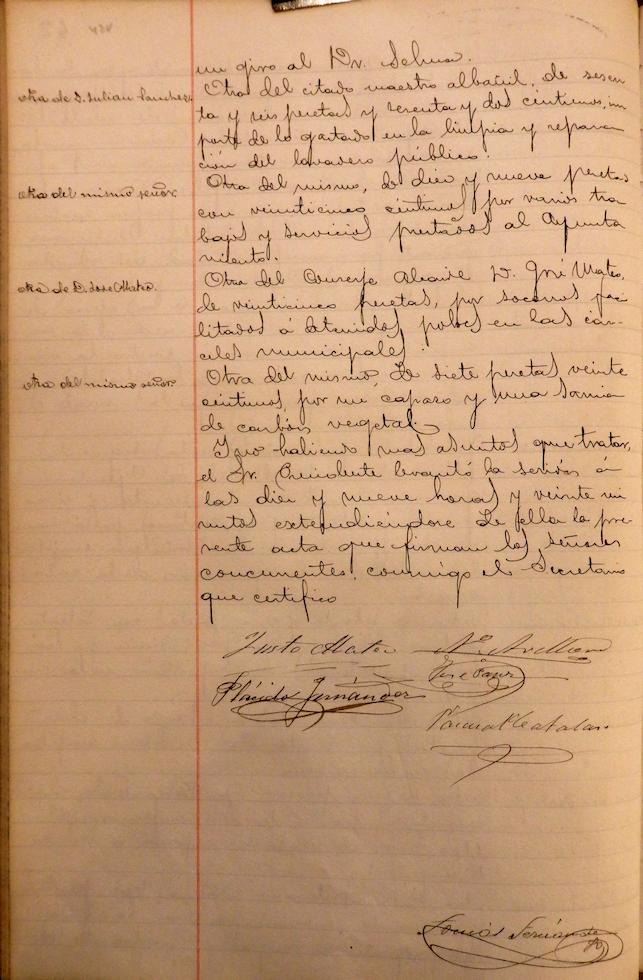 un giro al Dr. Selma.
otra de D. Julian Sanchez
Otra del citado maestro albañil, de sesen
ta y seis pesetas y sesenta y dos céntimos, im
porte de lo gastado en la limpia y repara
ción del lavadero público.
otra del mismo señor
Otra del mismo, de diez y nueve pesetas
con veinticinco céntimos por varios tra
bajos y servicios prestados al Ayunta
miento.
otra de D. Jose Mateo.
Otra del Conserje Alcaide D. José Mateo,
de veinticinco pesetas, por socorros faci
litados á detenidos pobres en las cár
celes municipales.
otra del mismo señor
Otra del mismo, de siete pesetas veinte
céntimos, por un capazo y una
de carbón vegetal.
Y no habiendo mas asuntos que tratar,
el Sr. Presidente levantó la sesión á
las diez y nueve horas y veinte mi
nutos extendiéndose de ella la pre
sente acta que firman los señores
concurrentes, conmigo el Secretario
que certifico
Justo Mateo
Plácido Fernández
José
Catalan
Tomás Fernández